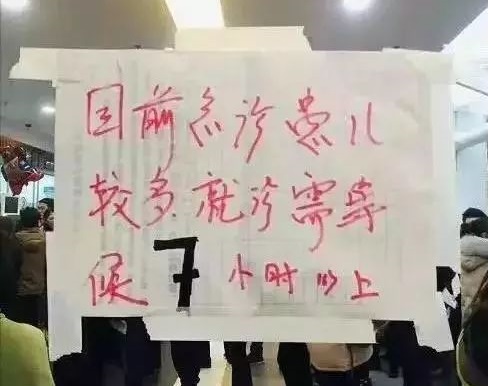 目前急诊患儿
较多,就诊需等
候7小时以上